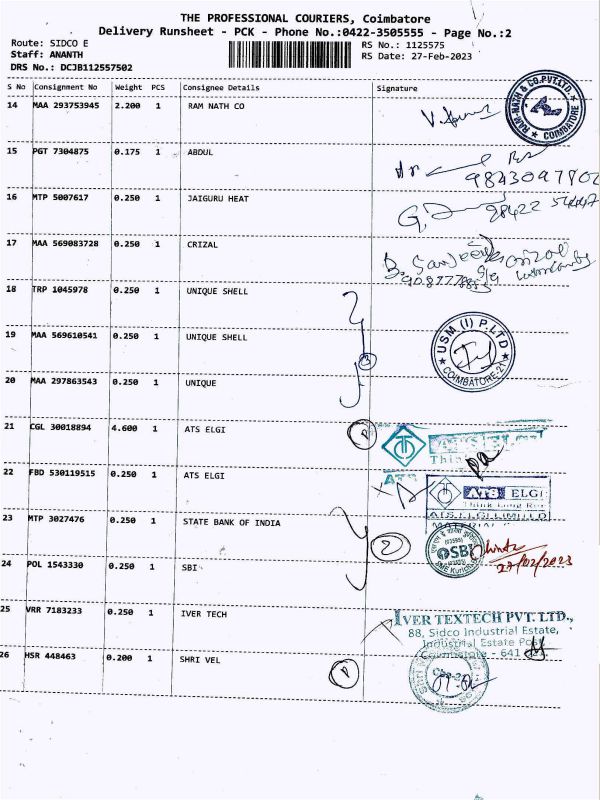 THE PROFESSIONAL COURIERS, Coimbatore
Delivery Runsheet - PCK - Phone No.:0422-3505555 - Page No.:2
Route: SIDCO E
RS No.: 1125575
Staff: ANANTH
RS Date: 27-Feb-2023
DRS No.: DCJB112557502
S No Consignment No Weight PCS Consignee Details Signature
14 MAA 293753945 2.200 1 RAM NATH CO
RAM-NATH & CO.PVT.LTD. COIMBATORE
15 PGT 7304875 0.175 1 ABDUL
16 MTP 5007617 0.250 1 JAIGURU HEAT
98422
17 MAA 569083728 0.250 1 CRIZAL
18 TRP 1045978 0.250 1 UNIQUE SHELL
19 MAA 569610541 0.250 1 UNIQUE SHELL
USM (I) P.LTD COIMBATORE-21
20 MAA 297863543 0.250 1 UNIQUE
21 CGL 30018894 4.600 1 ATS ELGI
ATS ELGI
22 FBD 530119515 0.250 1 ATS ELGI
ATS ELGI
ATS ELGI LIMITED
23 MTP 3027476 0.250 1 STATE BANK OF INDIA
SBI
27/02/2023
24 POL 1543330 0.250 1 SBI
25 VRR 7183233 0.250 1 IVER TECH
IVER TEXTECH PVT. LTD.,
88, Sidco Industrial Estate,
Industrial Estate Post,
Coimbatore - 641
26 HSR 448463 0.200 1 SHRI VEL